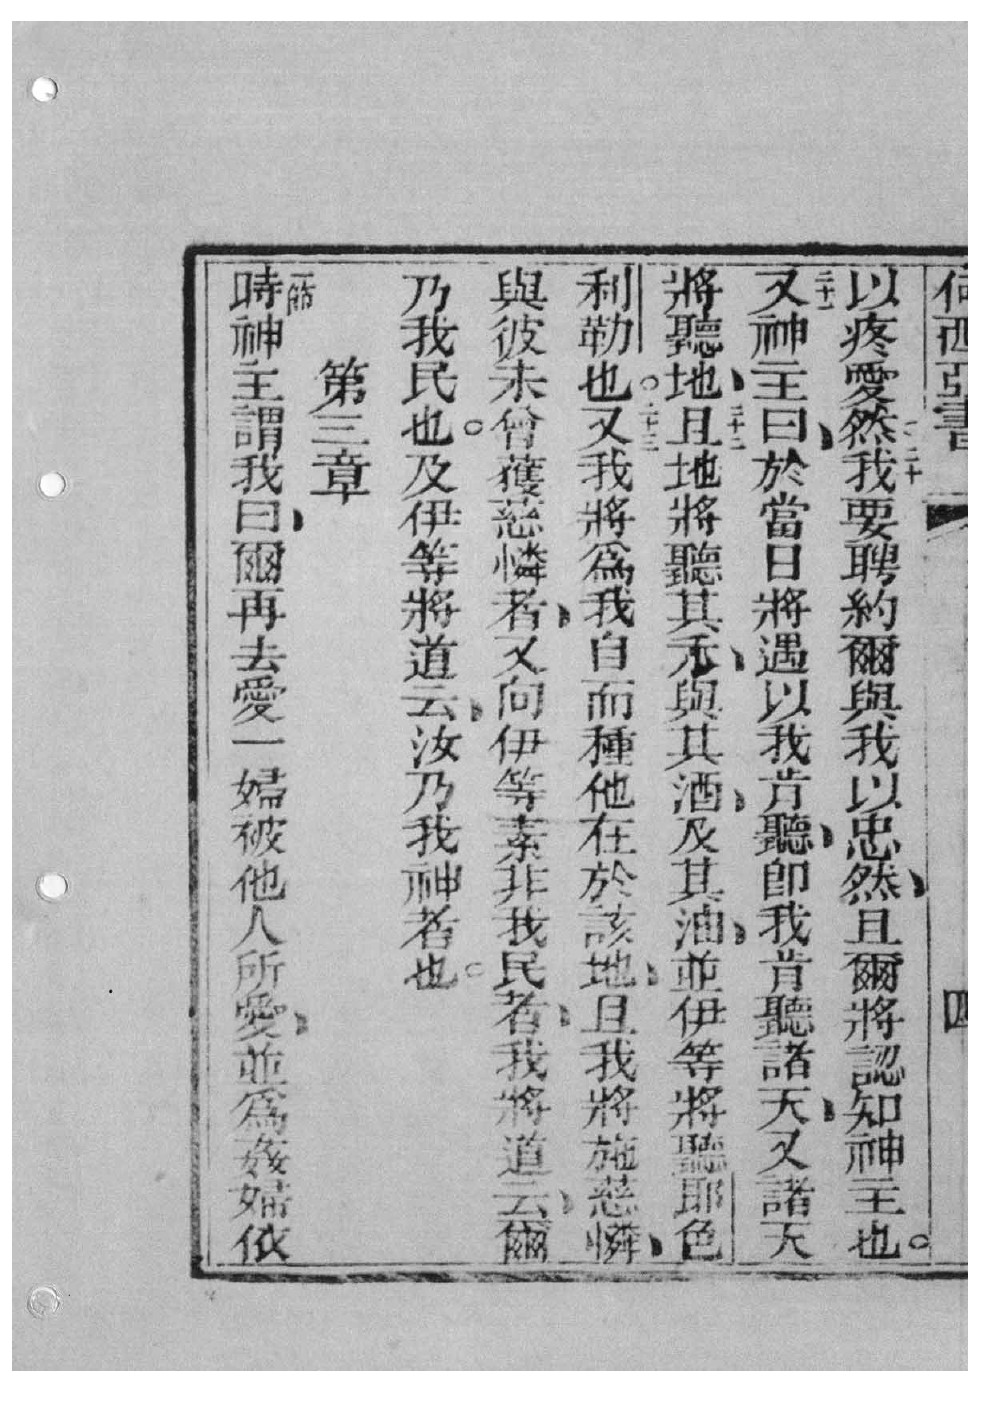 何西亞書 四
以疼愛然二十我要聘約爾與我以忠然、且爾將認知神主也。
二十一又神主曰、於當日將遇以我肯聽、卽我肯聽諸天、又諸天
將聽地、二十二且地將聽其禾、與其酒、及其油、並伊等將聽耶色
利勒也。二十三又我將爲我自而種他在於該地、且我將施慈憐、
與彼未曾獲慈憐者、又向伊等素非我民者、我將道云、爾
乃我民也。及伊等將道云、汝乃我神者也。
第三章
一節時神主謂我曰、爾再去愛一婦被他人所愛、並爲姦婦依